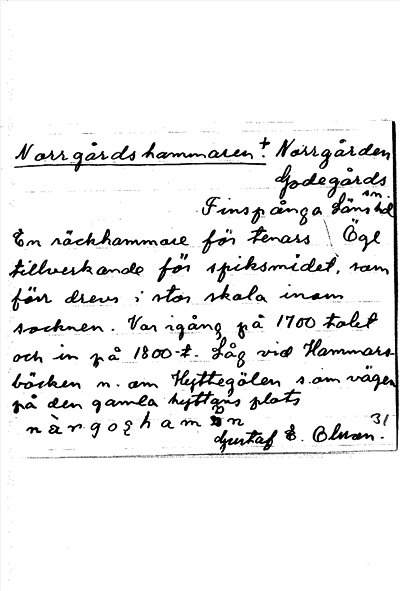 Norrgårdshammaren.† Norrgården
Godegårds
sn.
Finspånga Läns hd
En räckhammare för tenars Ögl
tillverkande för spiksmidet, som
förr drevs i stor skala inom
socknen. Var igång på 1700 talet
och in på 1800-t. Låg vid Hammars-
bäcken n. om Hyttegölen s. om vägen
på den gamla hyttans plats
31
Gustaf E. Olsson.